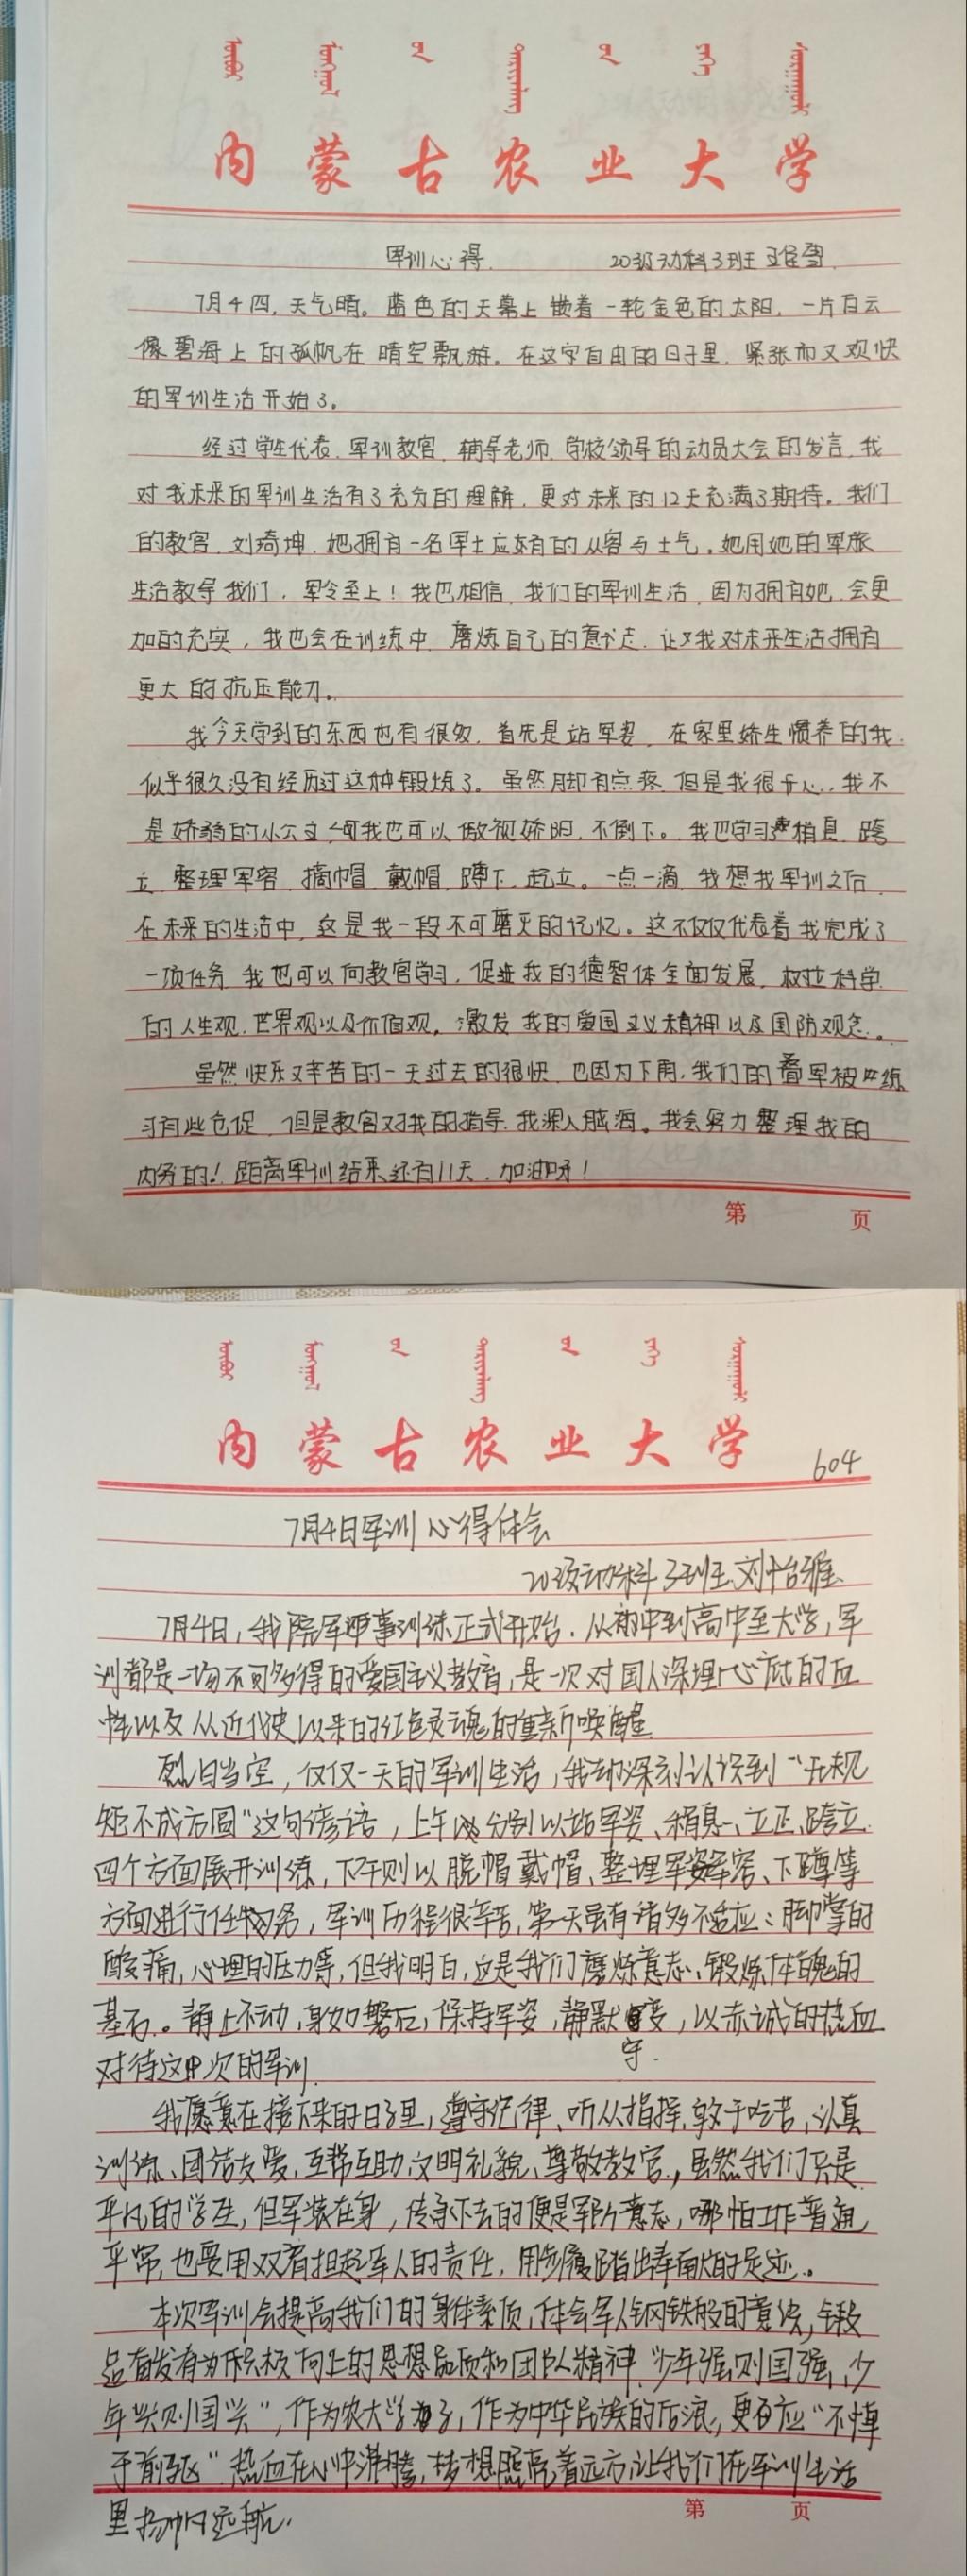 内蒙古农业大学
军训心得. 20级动科3班 王
7月4四,天气晴。蓝色的天幕上嵌着一轮金色的太阳,一片白云
像碧海上的孤帆在晴空飘游。在这字自由的日子里,紧张而又欢快
的军训生活开始了。
经过学生代表、军训教官、辅导老师、学校领导的动员大会的发言,我
对我未来的军训生活有了充分的理解,更对未来的12天充满了期待。我们
的教官,刘琦坤,她拥有一名军士应有的从容与士气。她用她的军旅
生活教导我们,军令至上!我也相信,我们的军训生活,因为拥有她,会更
加的充实,我也会在训练中,磨炼自己的意志,让我对未来生活拥有
更大的抗压能力。
我今天学到的东西也有很多,首先是站军姿,在家里娇生惯养的我,
似乎很久没有经历过这种锻炼了。虽然脚有点疼,但是我很开心,我不
是娇弱的小公主,我也可以傲视娇阳,不倒下。我也学习稍息、跨
立、整理军容、摘帽、戴帽、蹲下、起立。一点一滴,我想我军训之后,
在未来的生活中,这是我一段不可磨灭的记忆。这不仅仅代表着我完成了
一项任务,我也可以向教官学习,促进我的德智体全面发展,树立科学
的人生观、世界观以及价值观。激发我的爱国主义精神以及国防观念。
虽然快乐又辛苦的一天过去的很快,也因为下雨,我们的叠军被练
习有些仓促,但是教官对我的指导,我深入脑海。我会努力整理我的
内务的!距离军训结束还有11天,加油呀!
第 页
内蒙古农业大学
604
7月4日军训心得体会
20级动科3班 刘怡雅
7月4日,我院军事训练正式开始。从初中到高中至大学,军
训都是一场不可多得的爱国主义教育,是一次对国人深埋心底的血
性以及从近代史以来的红色灵魂的重新唤醒
烈日当空,仅仅一天的军训生活,我却深刻认识到“无规
矩不成方圆”这句谚语,上午分别以站军姿、稍息、立正、跨立
四个方面展开训练,下午则以脱帽戴帽、整理军容、下蹲等
方面进行任务,军训历程很辛苦,第一天虽有诸多不适应:脚掌的
酸痛,心理的压力等,但我明白,这是我们磨炼意志、锻炼体魄的
基石。静止不动,身如磐石,保持军姿,静默守变,以赤诚的热血
对待这次的军训.
我愿意在接下来的日子里,遵守纪律、听从指挥,敢于吃苦,认真
训练、团结友爱,互帮互助,文明礼貌、尊敬教官,虽然我们只是
平凡的学生,但军装在身,传承下去的便是军队意志,哪怕工作普通
平常,也要用双肩担起军人的责任,用步履踏出奉献的足迹。
本次军训会提高我们的身体素质,体会军人钢铁般的意志,锻
造奋发有为积极向上的思想品质和团队精神,“少年强则国强,少
年兴则国兴”,作为农大学子,作为中华民族的后浪,更应“不惮
于前驱”热血在心中沸腾,梦想照亮着远方,让我们在军训生活
里扬帆远航.
第 页